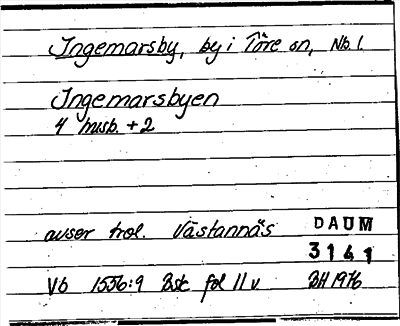 Ingemarsby, by i Töre sn, Nb l.
Ingemarsbyen
4 husb. + 2
avser trol. Västannäs
DAUM
3141
Vb 1556:9 Bsk fol 11 v BH 1976